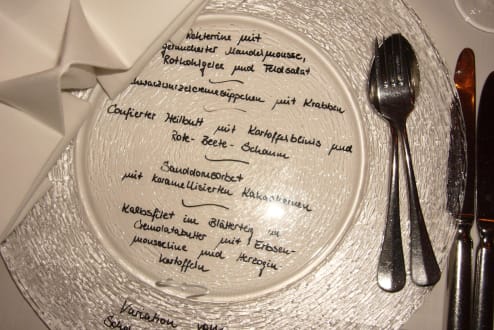 mit
geräucherter Mandelmousse,
Rotkohlgelee und Feldsalat
hwarzwurzelcremesüppchen mit Krabben
Confierter Heilbutt mit Kartoffelblinis und
Rote-Beete-Schaum
Sanddornsorbet
mit karamellisierten Kakaokernen
Kalbsfilet im Blätterteig in
Gremolatabutter mit Erbsen-
mousseline und Herzogin
kartoffeln
Variation vom